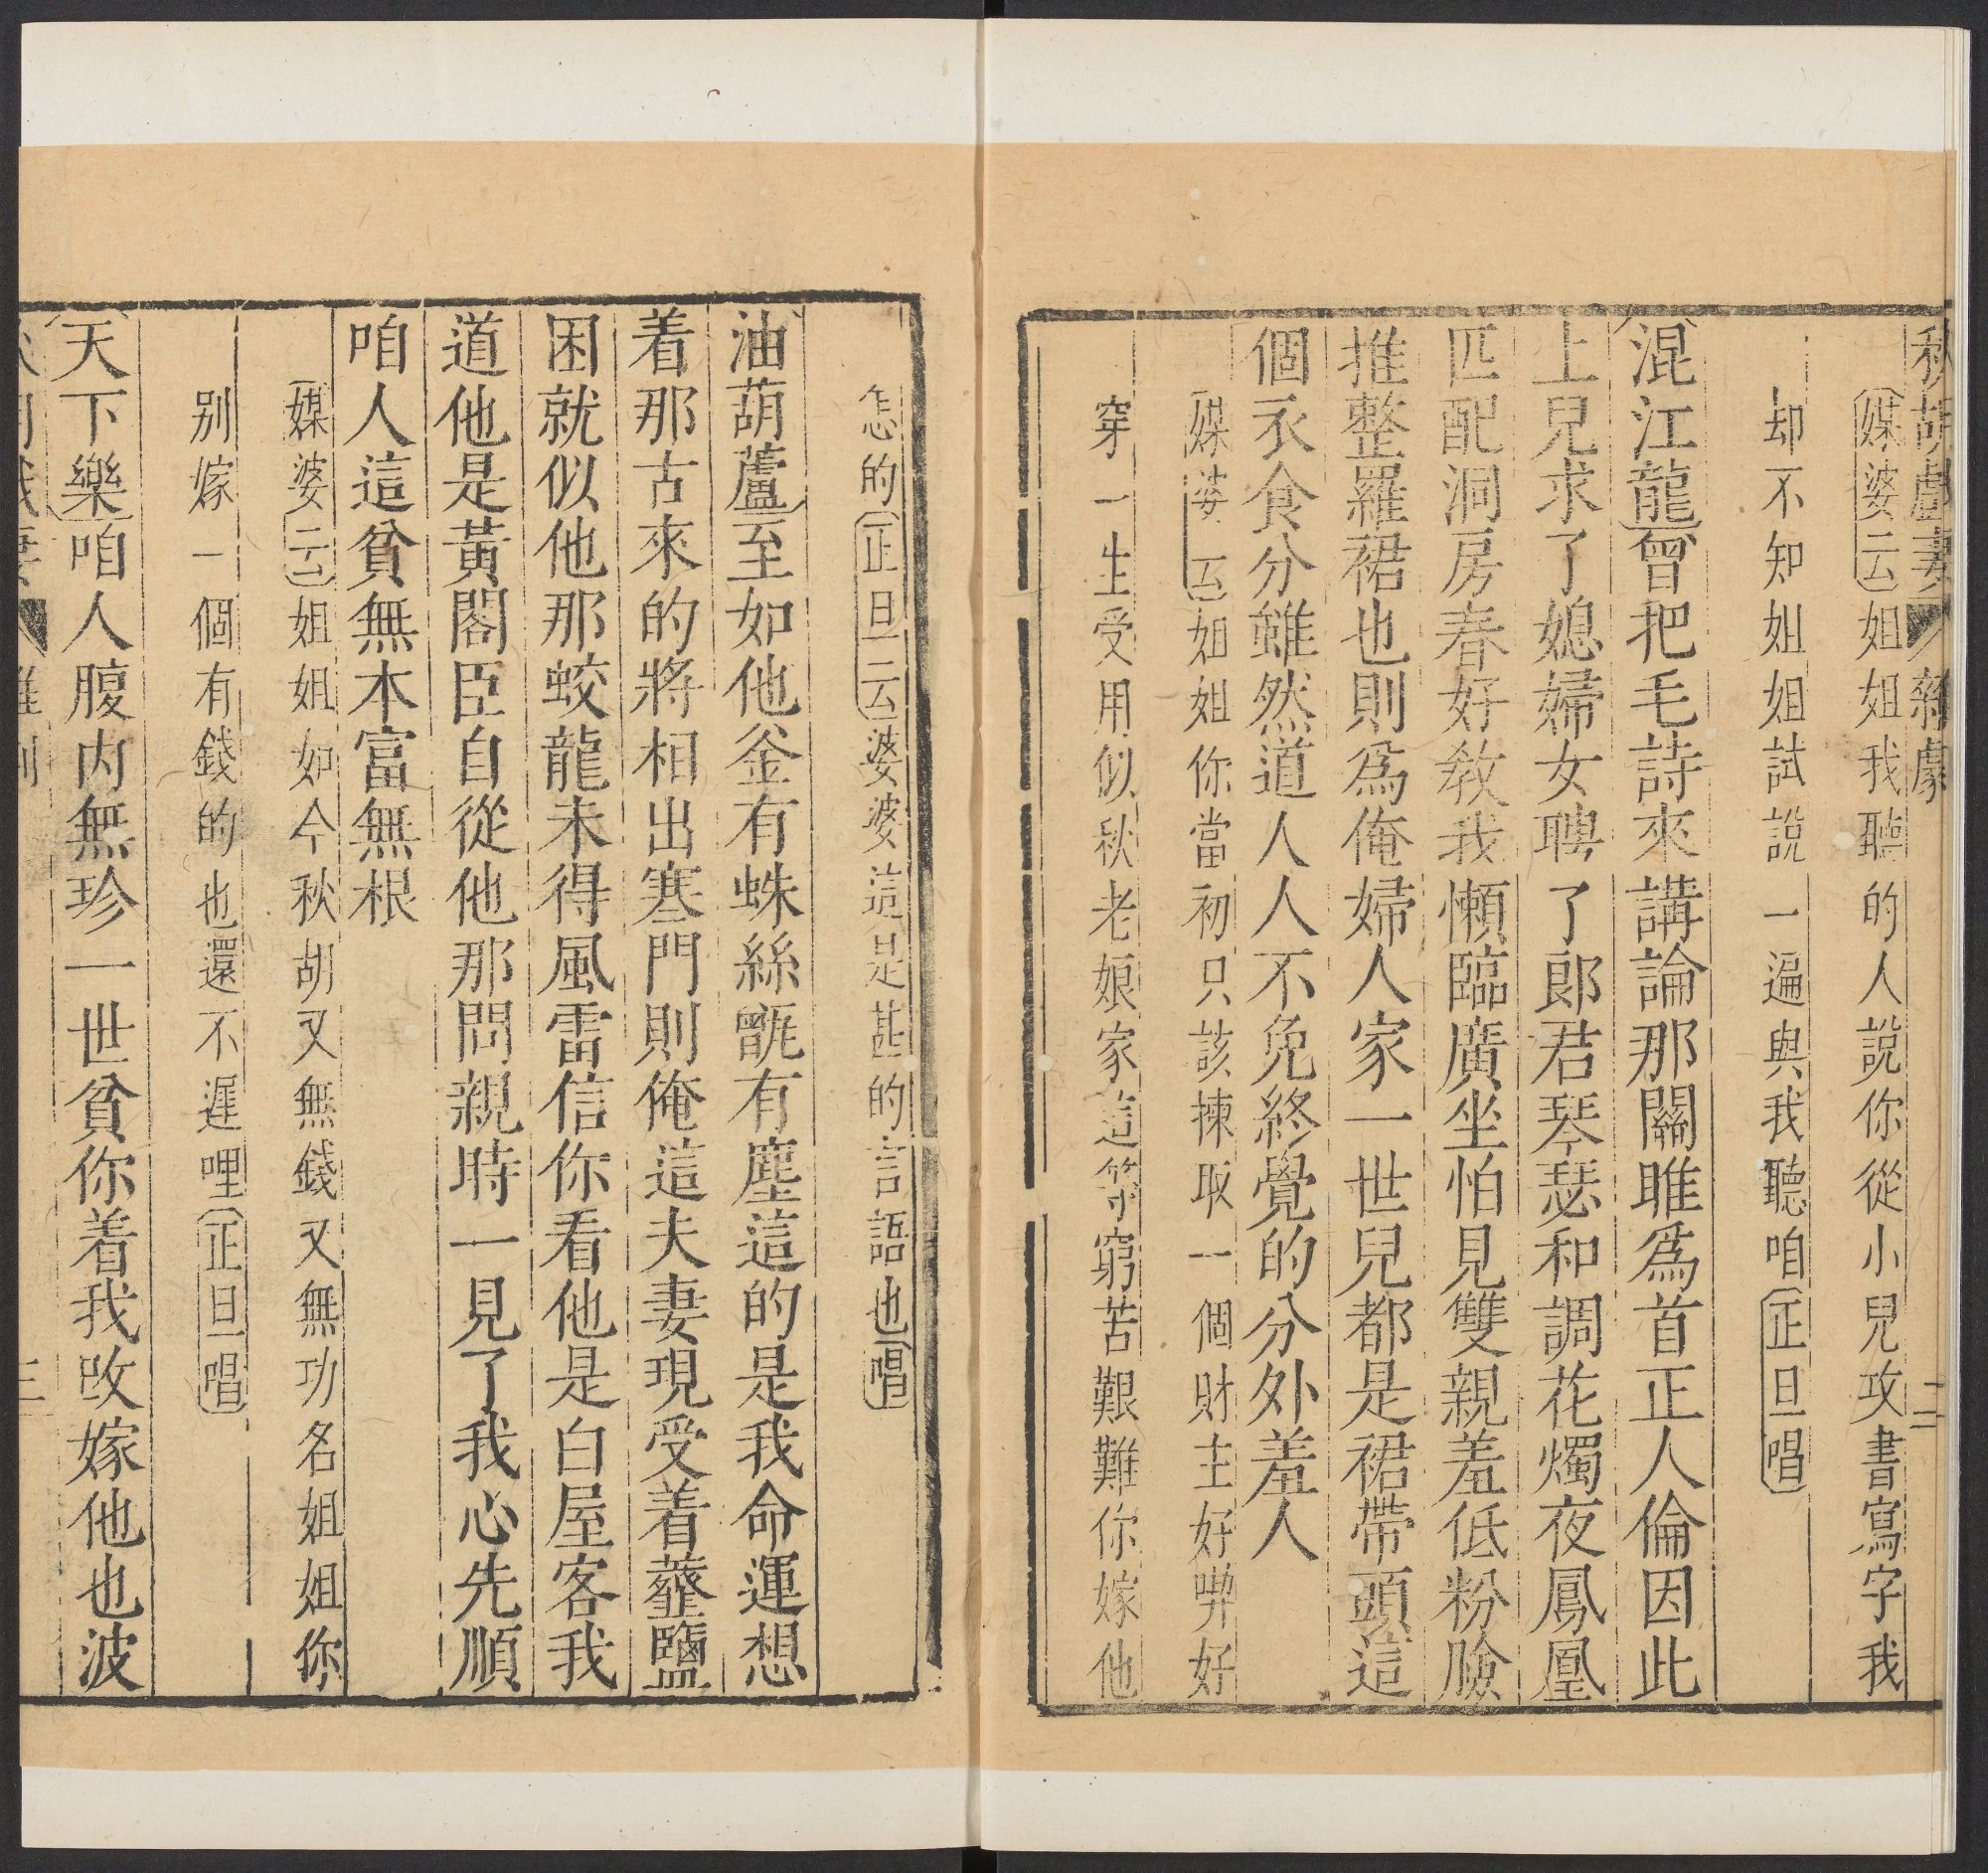 秋胡戲妻 雜劇 二
媒婆云姐姐我聽的人說你從小兒攻書寫字我
却不知姐姐試說一遍與我聽咱正旦唱
混江龍曾把毛詩來講論那關雎爲首正人倫因此
上兒求了媳婦女聘了郎君琴瑟和調花燭夜鳳凰
匹配洞房春好教我懶臨廣坐怕見雙親羞低粉臉
推整羅裙也則爲俺婦人家一世兒都是裙帶頭這
個衣食分雖然道人人不免終覺的分外羞人
媒婆云姐姐你當初只該揀取一個財主好喫好
穿一生受用似秋老娘家這等窮苦艱難你嫁他
怎的正旦云婆婆這是甚的言語也唱
油葫蘆至如他釜有蛛絲甑有塵這的是我命運想
着那古來的將相出寒門則俺這夫妻現受着虀鹽
困就似他那蛟龍未得風雷信你看他是白屋客我
道他是黃閣臣自從他那問親時一見了我心先順
咱人這貧無本富無根
媒婆云姐姐如今秋胡又無錢又無功名姐姐你
別嫁一個有錢的也還不遲哩正旦唱
天下樂咱人腹內無珍一世貧你着我改嫁他也波
三